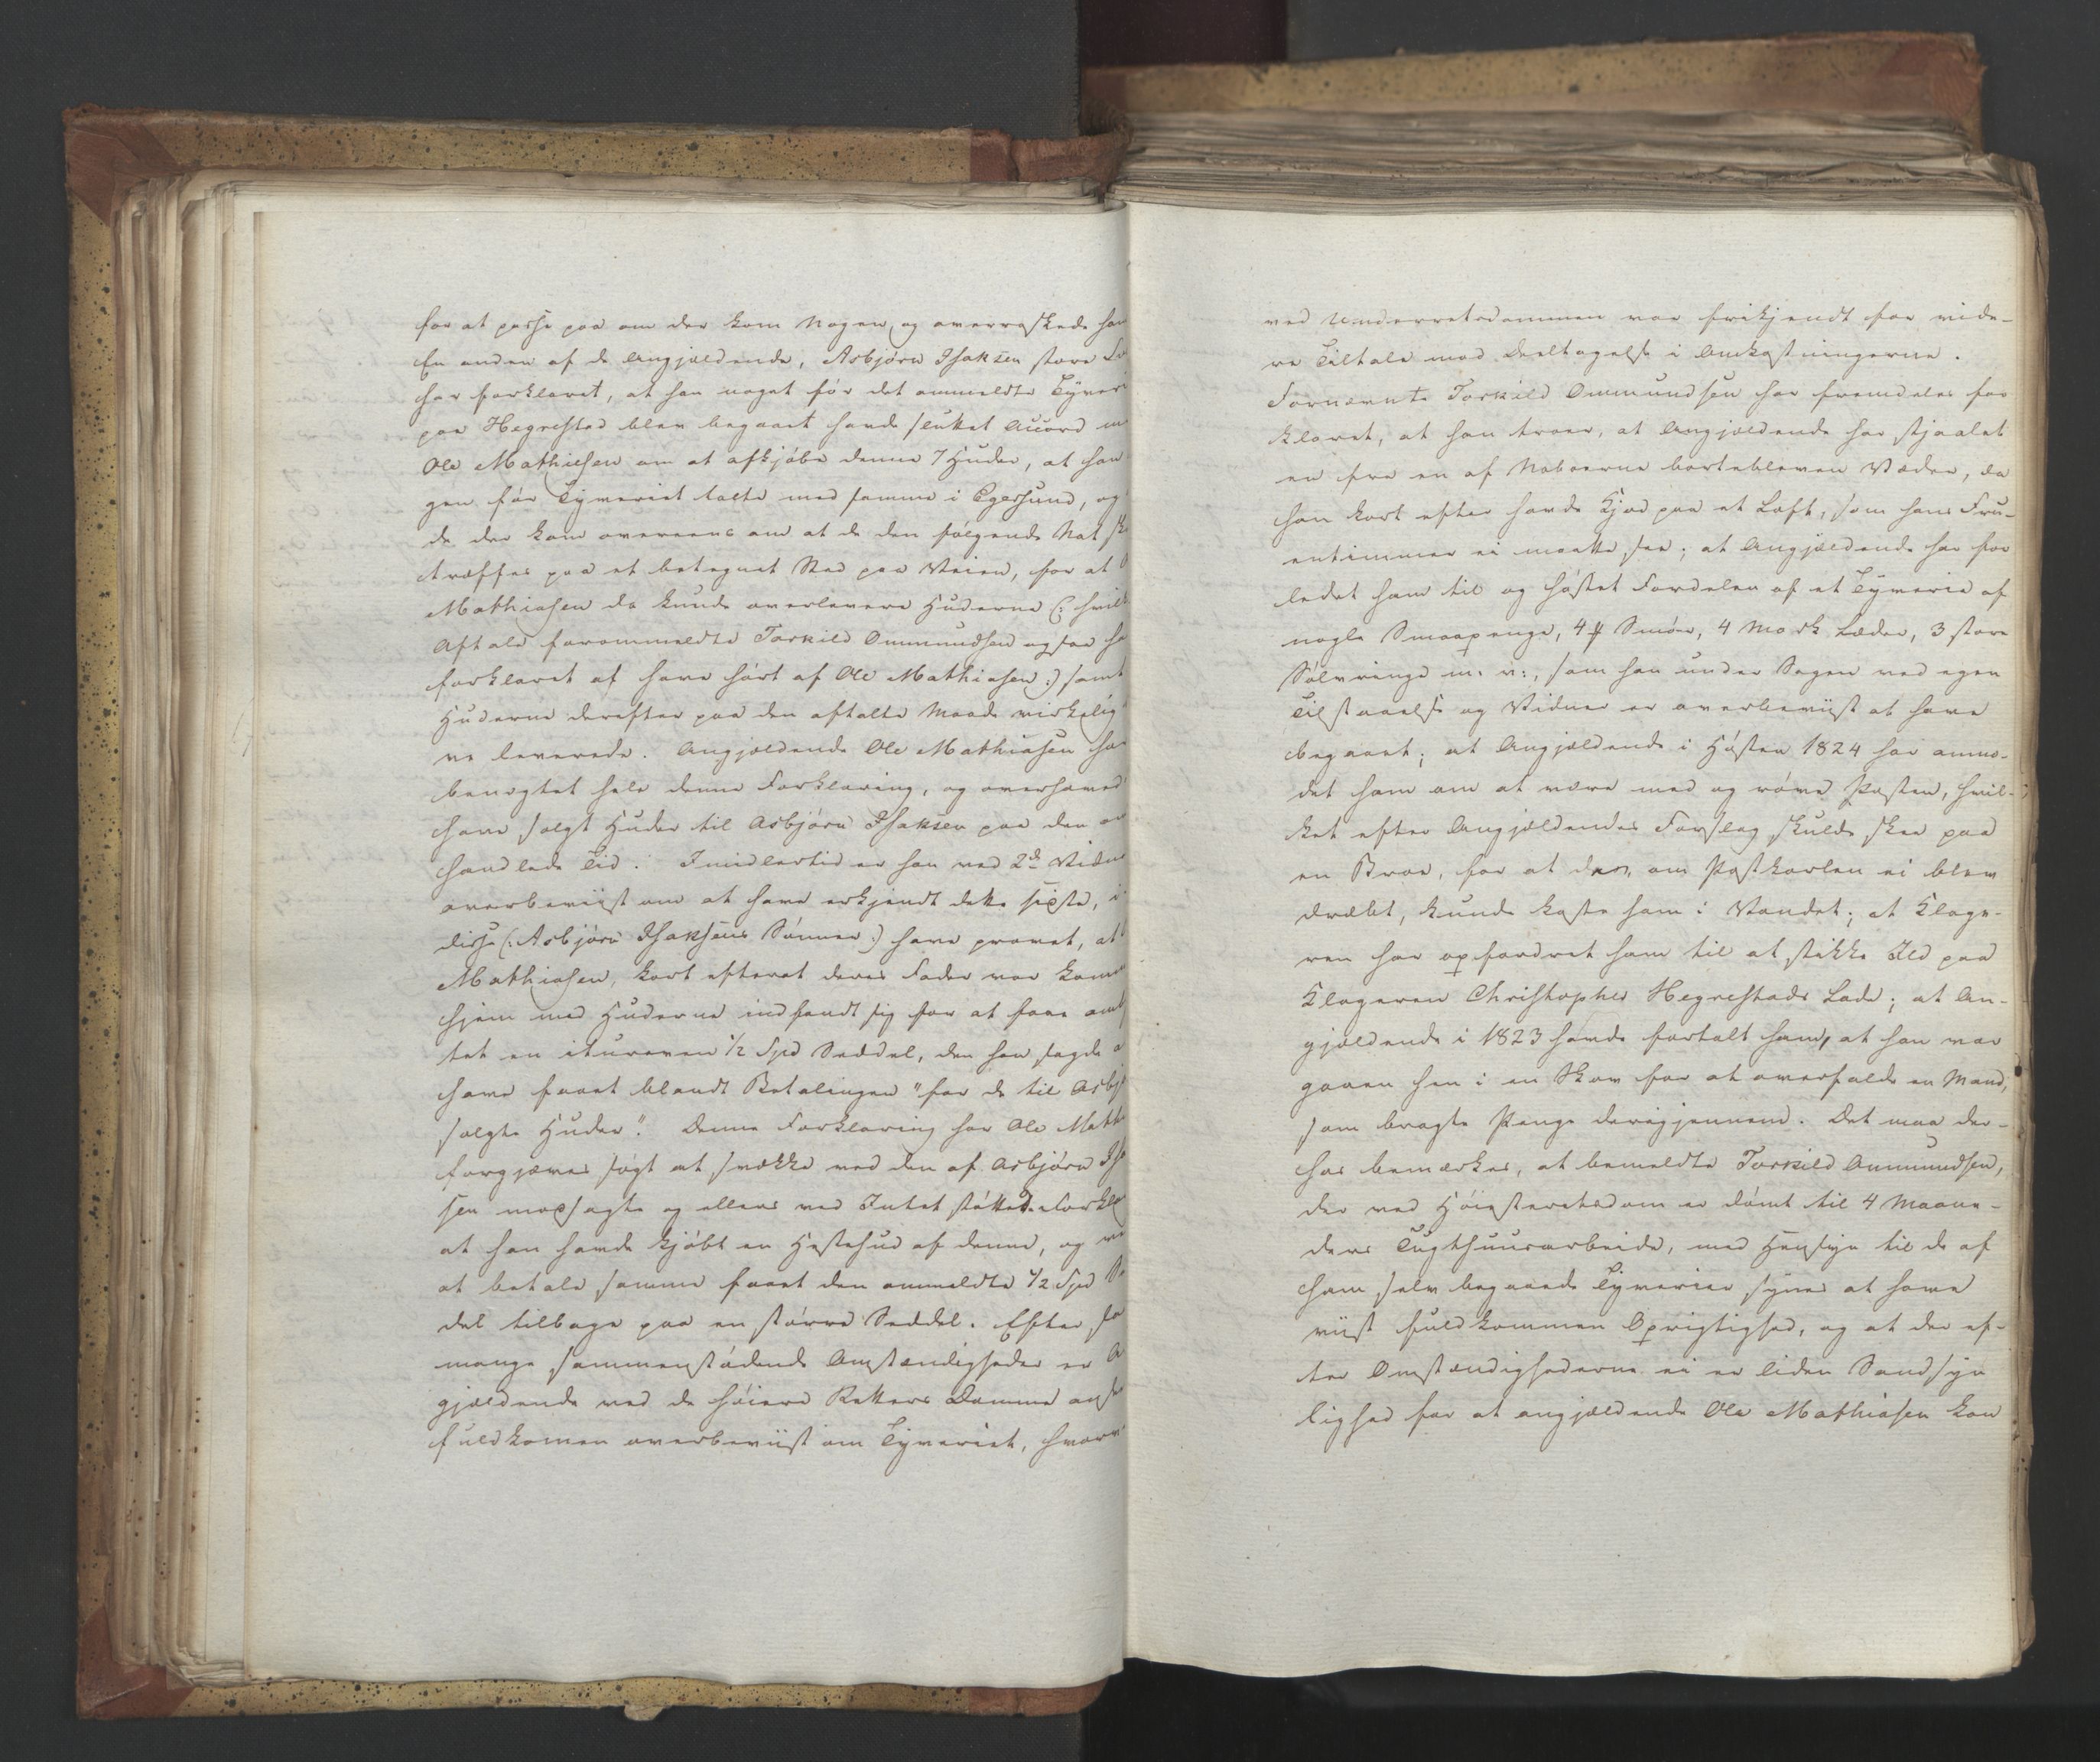 for at passe paa om der kom Nogen, og overraskede ham
En anden af de Angjældende, Asbjørn Isaksen store
har forklaret, at han noget før det ommeldte Tyveri
paa Hegrestad blev begaaet havde sluttet Accord m
Ole Mathiesen om at afkjøbe denne 7 Huder, at han
gen før Tyveriet talte med samme i Egersund, og
de der kom overeens om at de den følgende Nat sk
træffes paa et betegnet Sted paa Veien, for at O
Mathiasen da kunde overlevere Huderne (: hvilk
Aftale forommeldte Torkild Ommundsen ogsaa ha
forklaret at have hørt af Ole Mathiasen :) samt
Huderne derefter paa den aftalte Maade virkelig
ve leverede. Angjældende Ole Mathiasen har
benægtet hele denne Forklaring, og overhoved
have solgt Huder til Asbjørn Isaksen paa den om
handlede Tid. Imidlertid er han ved 2de Vidne
overbeviist om at have erkjendt dette sidste, i
disse (: Asbjørn Isaksens Sønner :) have provet, at O
Mathiasen, kort efterat deres Fader var komme
hjem med Huderne indfandt sig for at faae omb
tet en itureven 1/2 Spd Seddel, den han sagde a
have faaet blandt Betalingen "for de til Asbjø
solgte Huder". Denne Forklaring har Ole Math
forgjæves søgt at svække ved den af Asbjørn Isa
sen modsagte og ellers ved Intet støttede Forkla
at han havde kjøbt en Hestehud af denne, og ve
at betale samme faaet den ommeldte 1/2 Spd Se
del tilbage paa en større Seddel. Efter sa
mange sammenstødende Omstændigheder er A
gjældende ved de høiere Retters Domme anse
fuldkomen overbeviist om Tyveriet, hvorv
ved Underretsdommen var frikjendt for vide-
re Tiltale mod Deeltagelse i Omkostningerne.
Fornævnte Torkild Ommundsen har fremdeles for
klaret, at han troer, at Angjældende har stjaalet
en fra en af Naboerne bortebleven Væder, da
han kort efter havde Kjød paa et Loft, som hans Fru-
entimmer ei maatte see; at Angjældende har for
ledet ham til og høstet Fordelen af et Tyverie af
nogle Smaapenge, 4 ℔ Smør, 4 Mark Læder, 3 store
Sølvringe m: v:, som han under Sagen ved egen
Tilstaaelse og Vidner er overbeviist at have
begaaet; at Angjældende i Høsten 1824 har anmo-
det ham om at være med og røve Posten, hvil-
ket efter Angjældendes Forslag skulde skee paa
en Broe, for at de, om Postkarlen ei blev
dræbt, kunde kaste ham i Vandet; at Klage-
ren har opfordret ham til at stikke Ild paa
Klageren Christopher Hegrestads Lade; at An-
gjældende i 1823 havde fortalt ham, at han var
gaaen hen i en Skov for at overfalde en Mand,
som bragte Penge derigjennem. Det maa der-
hos bemærkes, at bemeldte Torkild Ommundsen,
der ved Høiesteretsdom er dømt til 4 Maane-
ders Tugthuusarbeide, med Hensyn til de af
ham selv begaaede Tyverier synes at have
viist fuldkommen Oprigtighed, og at der ef-
ter Omstændighederne ei er liden Sandsyn
lighed for at angjældende Ole Mathiasen kan